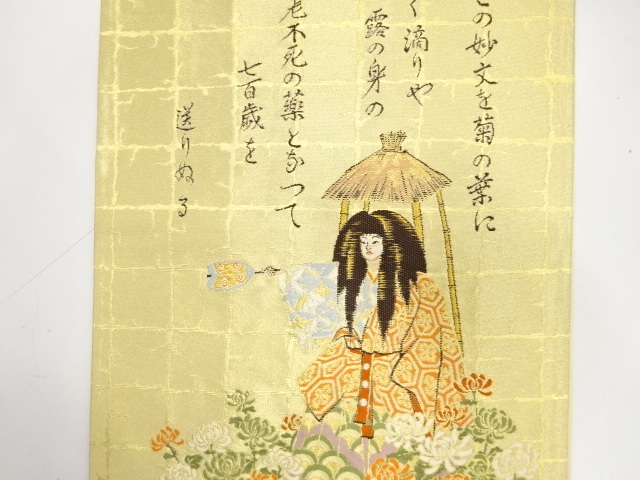 この妙文を菊の葉に
く滴りや
露の身の
不死の薬となつて
七百歳を
送りぬる